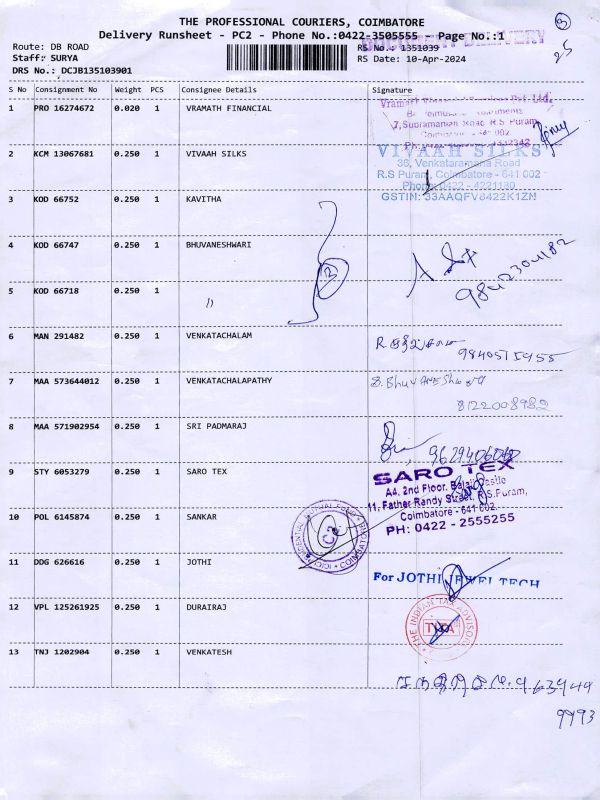 THE PROFESSIONAL COURIERS, COIMBATORE
Delivery Runsheet - PC2 - Phone No.:0422-3505555 - Page No.:1
Route: DB ROAD
Staff: SURYA
DRS No.: DCJB135103901
RS No.: 1351039
RS Date: 10-Apr-2024
DELIVERY
3
25
S No Consignment No Weight PCS Consignee Details Signature
1 PRO 16274672 0.020 1 VRAMATH FINANCIAL
7, Subramaniam Road, R.S Puram,
2 KCM 13067681 0.250 1 VIVAAH SILKS
VIVAAH SILKS
36, Venkataramana Road
R.S Puram, Coimbatore - 641 002
Phone: 0422 - 4221130
GSTIN: 33AAQFV6422K1ZN
3 KOD 66752 0.250 1 KAVITHA
4 KOD 66747 0.250 1 BHUVANESHWARI
5 KOD 66718 0.250 1 "
3
6 MAN 291482 0.250 1 VENKATACHALAM
7 MAA 573644012 0.250 1 VENKATACHALAPATHY
8122008982
8 MAA 571902954 0.250 1 SRI PADMARAJ
9 STY 6053279 0.250 1 SARO TEX
SARO TEX
A4, 2nd Floor, Balaji Castle
11, Father Randy Street, R.S.Puram,
Coimbatore - 641 002.
PH: 0422 - 2555255
10 POL 6145874 0.250 1 SANKAR
11 DDG 626616 0.250 1 JOTHI
For JOTHI JEWEL TECH
12 VPL 125261925 0.250 1 DURAIRAJ
THE INDIAN TAX ADVISOR
13 TNJ 1202904 0.250 1 VENKATESH
9993